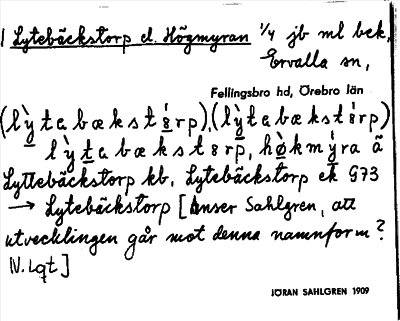 1 Lytebäckstorp el. Högmyran 1/4 jb ml bek,
Ervalla sn,
Fellingsbro hd, Örebro län
(lỳtabækstárp), (lỳtabækstárp)
lỳtabækstarp, hø̀kmýra ã
Lyttebäckstorp kb, Lytebäckstorp ek G73
→ Lytebäckstorp [Anser Sahlgren, att
utvecklingen går mot denna namnform?
N. Lqt]
JÖRAN SAHLGREN 1909